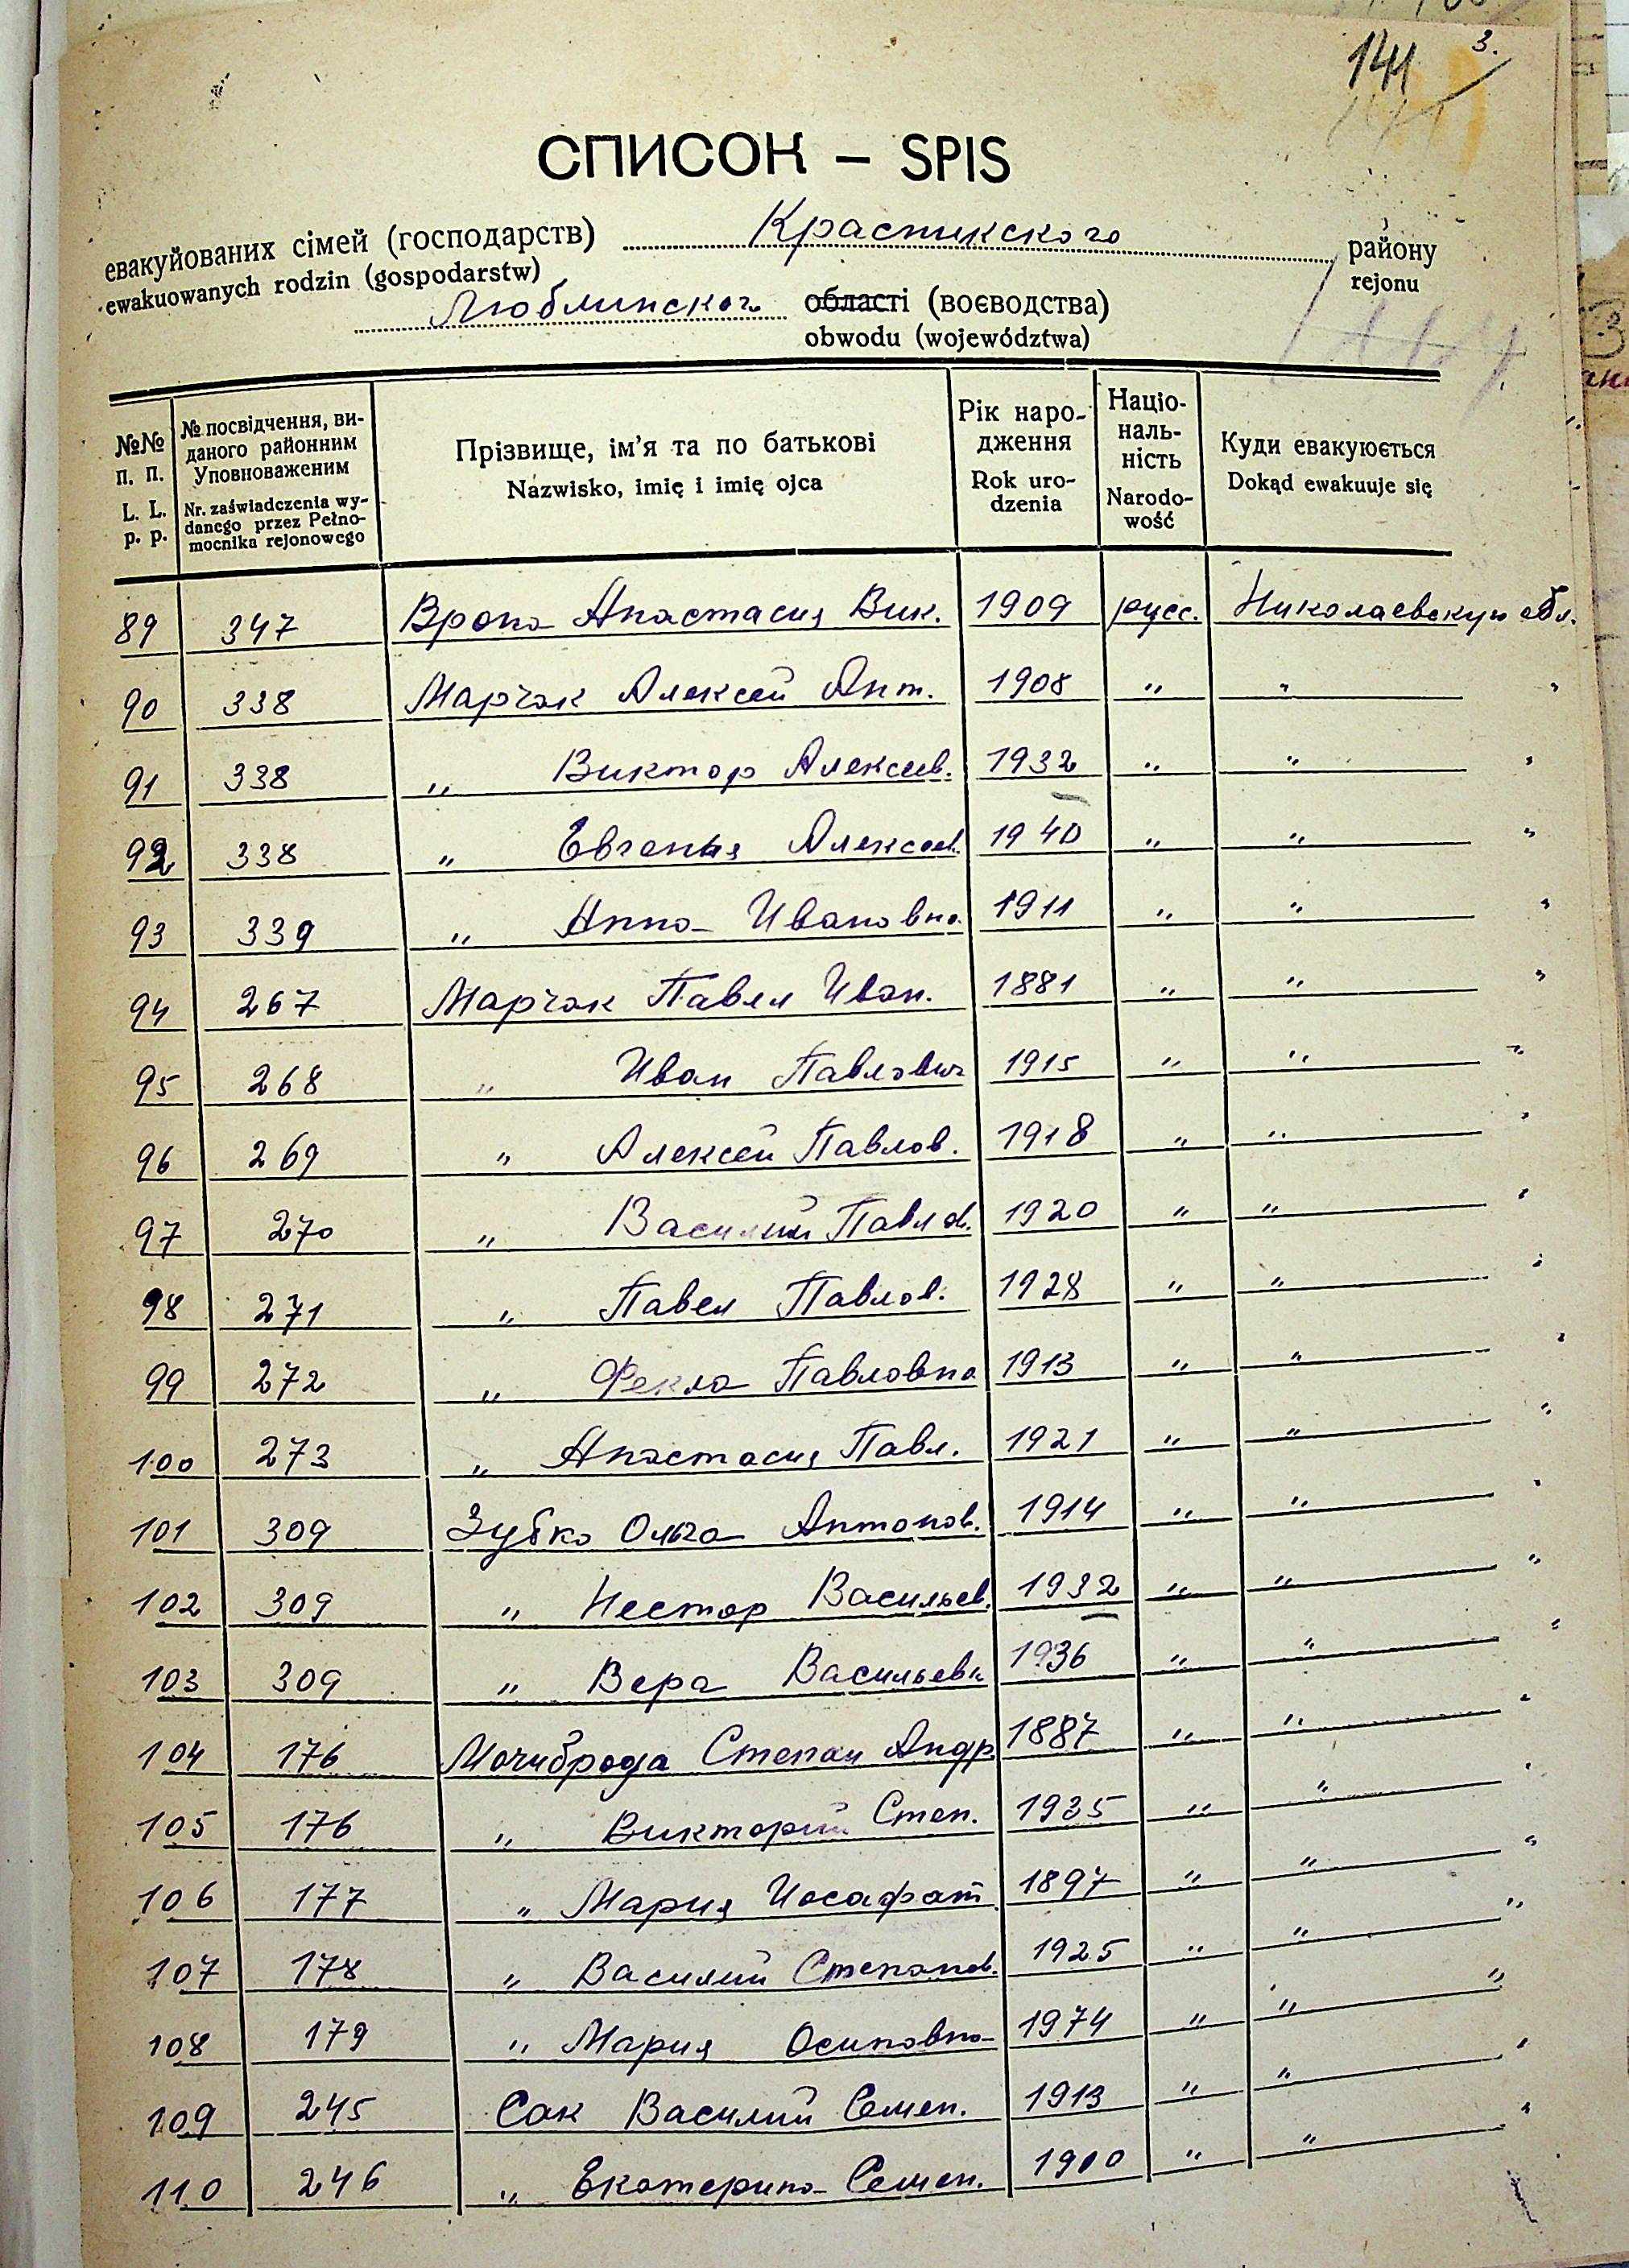 3.
141
СПИСОК – SPIS
евакуйованих сімей (господарств) Красникского району
ewakuowanych rodzin (gospodarstw) rejonu
Люблинског області (воєводства)
obwodu (województwa)
№№ п. п. L. L. p. p. № посвідчення, виданого районним Уповноваженим Nr. zaświadczenia wydanego przez Pełnomocnika rejonowego Прізвище, ім'я та по батькові Nazwisko, imię i imię ojca Рік народження Rok urodzenia Національність Narodowość Куди евакуюється Dokąd ewakuuje się
89 347 Врона Анастасия Вик. 1909 русс. Николаевскую обл.
90 338 Марчак Алексей Ант. 1908 " " "
91 338 " Виктор Алексеев. 1932 " " "
92 338 " Евгения Алексеев. 1940 " " "
93 339 " Анна Ивановна 1911 " " "
94 267 Марчак Павел Иван. 1881 " " "
95 268 " Иван Павлович 1915 " " "
96 269 " Алексей Павлов. 1918 " " "
97 270 " Василий Павлов. 1920 " " "
98 271 " Павел Павлов. 1928 " " "
99 272 " Фекла Павловна 1913 " " "
100 273 " Анастасия Павл. 1921 " " "
101 309 Зубко Ольга Антонов. 1914 " " "
102 309 " Нестор Васильев. 1932 " " "
103 309 " Вера Васильевн 1936 " " "
104 176 Мочиброда Степан Андр 1887 " " "
105 176 " Викторий Степ. 1935 " " "
106 177 " Мария Иосафат 1897 " " "
107 178 " Василий Степанов. 1925 " " "
108 179 " Мария Осиповна 1974 " " "
109 245 Сак Василий Семен. 1913 " " "
110 246 " Екатерина Семен. 1910 " " "